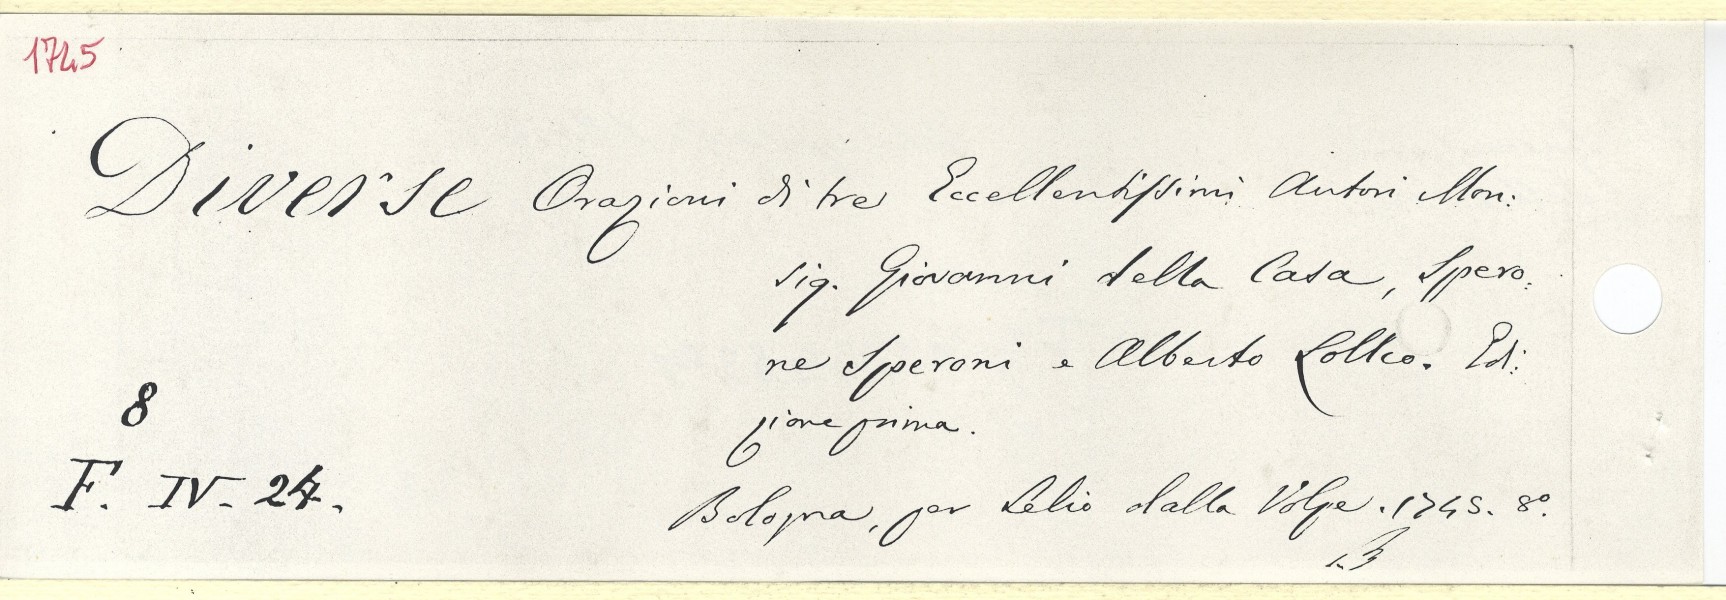 1745
Diverse Orazioni di tre Eccellentissimi Autori Mon:
sig. Giovanni della Casa, Spero:
ne Speroni e Alberto Lollio. Edi:
zione prima.
8
F. IV. 24.
Bologna, per Lelio dalla Volpe. 1745. 8º.